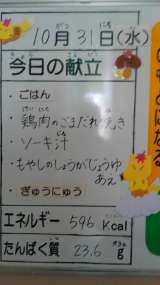 10月31日(水)
今日の献立
・ごはん
・鶏肉のごまだれやき
・ソーキ汁
・もやしのしょうがじょうゆ
あえ
・ぎゅうにゅう
エネルギー 596 Kcal
たんぱく質 23.6 g